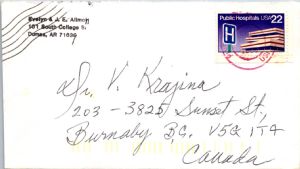 Evelyn & J. E. Allmon
101 South College S.
Dumas, AR 71639
Public Hospitals USA 22
H
Dr. V. Krajina
203-3825 Sunset St,
Burnaby BC. V5G 1T4
Canada